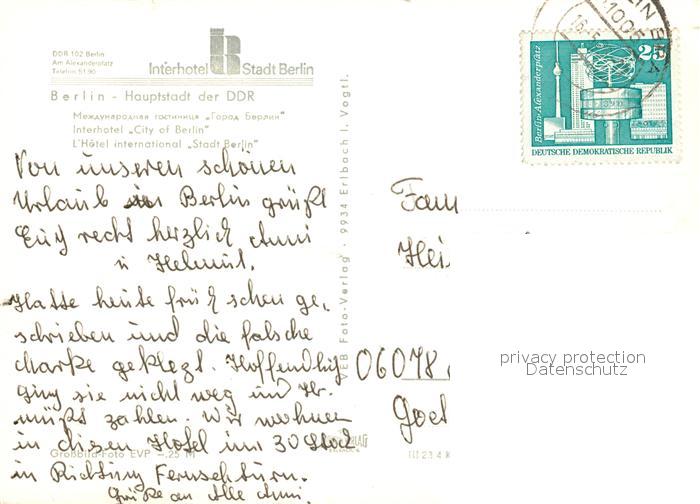 DDR 102 Berlin
Am Alexanderplatz
Telefon 51 90
Interhotel Stadt Berlin
Berlin - Hauptstadt der DDR
Международная гостиница „Город Берлин"
Interhotel „City of Berlin"
L'Hôtel international „Stadt Berlin"
Von unseren schönen
Urlaub in Berlin grüßt
Euch recht herzlich Anni
u Helmut.
Hatte heute früh schon ge-
schrieben und die falsche
Marke geklebt. Hoffendlich
ging sie nicht weg und Ihr
müßt zahlen. Wir wohnen
in diesen Hotel im 30 Stock
in Richtung Fernsehturm.
Grüße an Alle Anni.
Großbild-Foto EVP -.25 M
VEB Foto-Verlag · 9934 Erlbach i. Vogtl.
25
Berlin-Alexanderplatz
DEUTSCHE DEMOKRATISCHE REPUBLIK
1005
16.
Fam
Hei
06078
Goet
III 23 4
privacy protection
Datenschutz